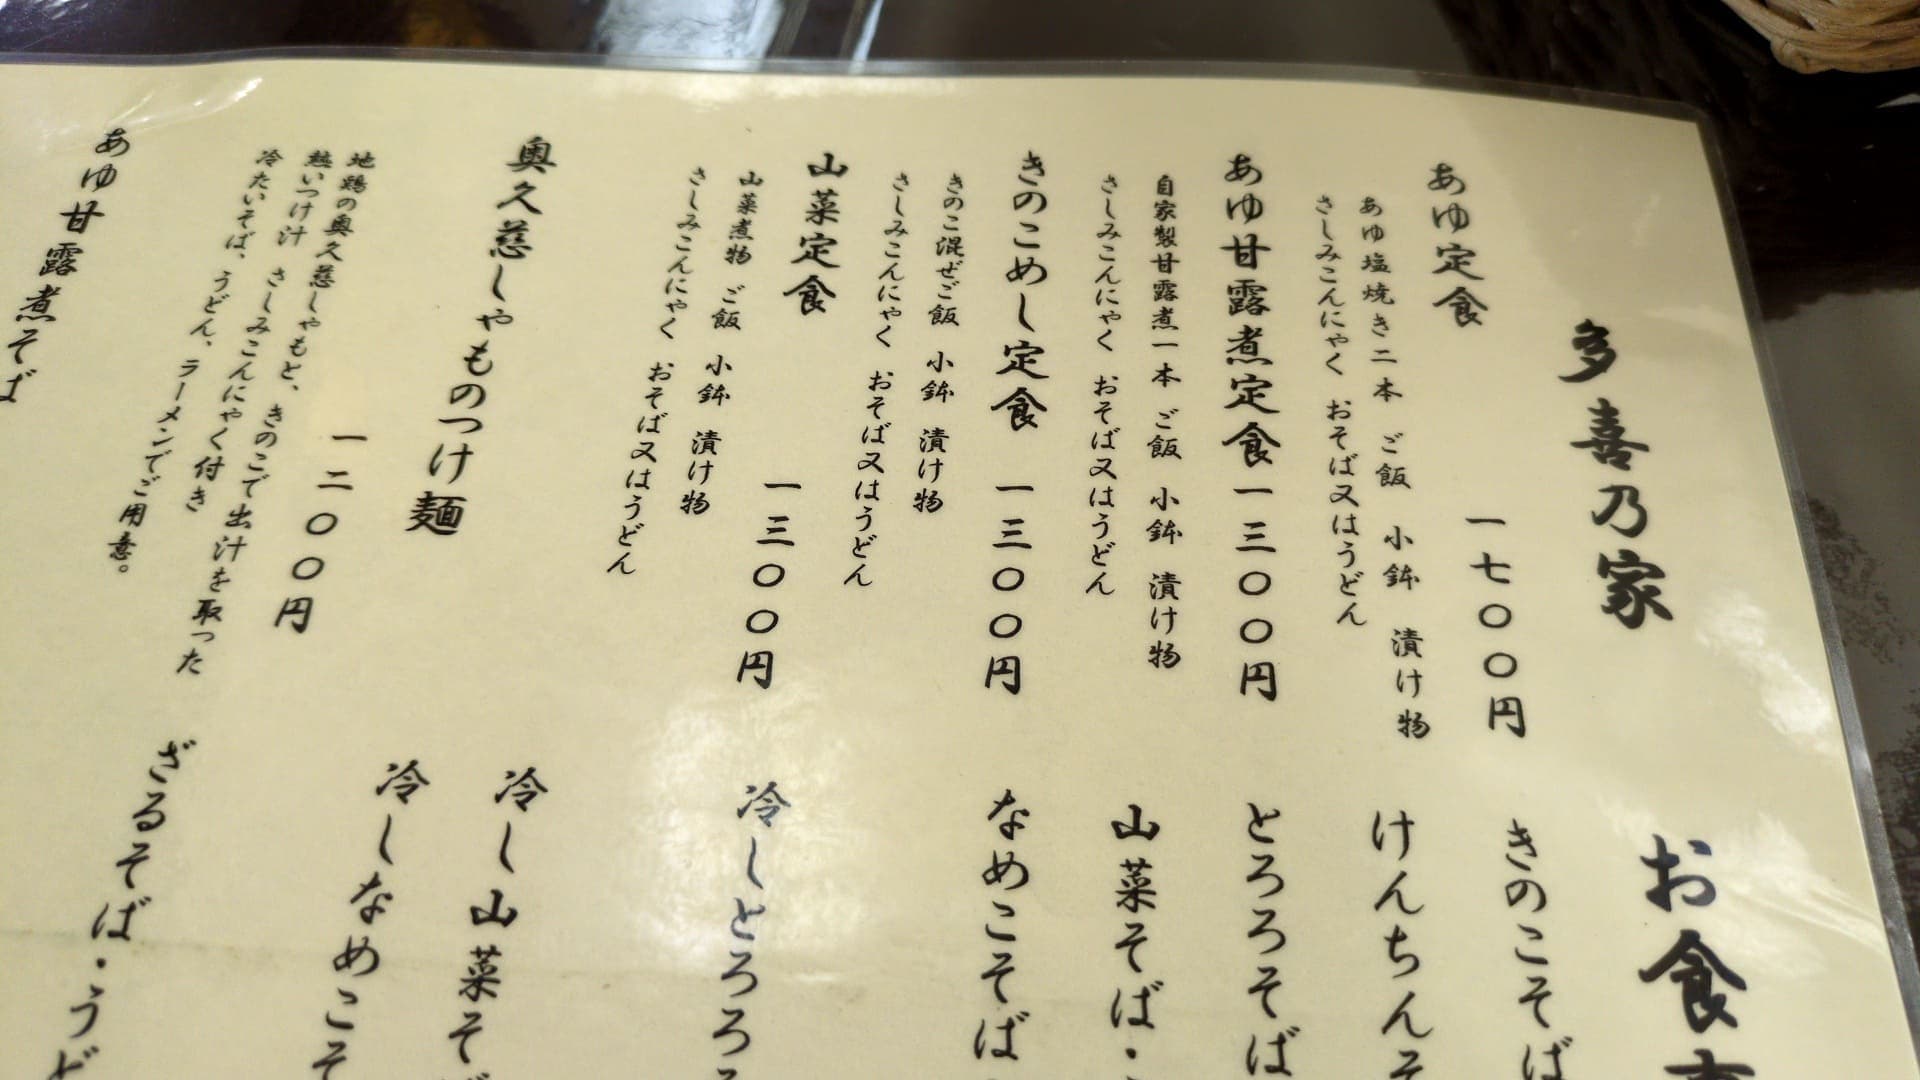 多喜乃家
お食
あゆ定食 一七〇〇円
あゆ塩焼き二本 ご飯 小鉢 漬け物
さしみこんにゃく おそば又はうどん
あゆ甘露煮定食 一三〇〇円
自家製甘露煮一本 ご飯 小鉢 漬け物
さしみこんにゃく おそば又はうどん
きのこめし定食 一三〇〇円
きのこ混ぜご飯 小鉢 漬け物
さしみこんにゃく おそば又はうどん
山菜定食 一三〇〇円
山菜煮物 ご飯 小鉢 漬け物
さしみこんにゃく おそば又はうどん
奥久慈しゃものつけ麺
一二〇〇円
地鶏の奥久慈しゃもと、きのこで出汁を取った
熱いつけ汁 さしみこんにゃく付き
冷たいそば、うどん、ラーメンでご用意。
あゆ甘露煮そば
きのこそば
けんちんそ
とろろそば
山菜そば・
なめこそば
冷しとろろ
冷し山菜そば
冷しなめこそ
ざるそば・うど